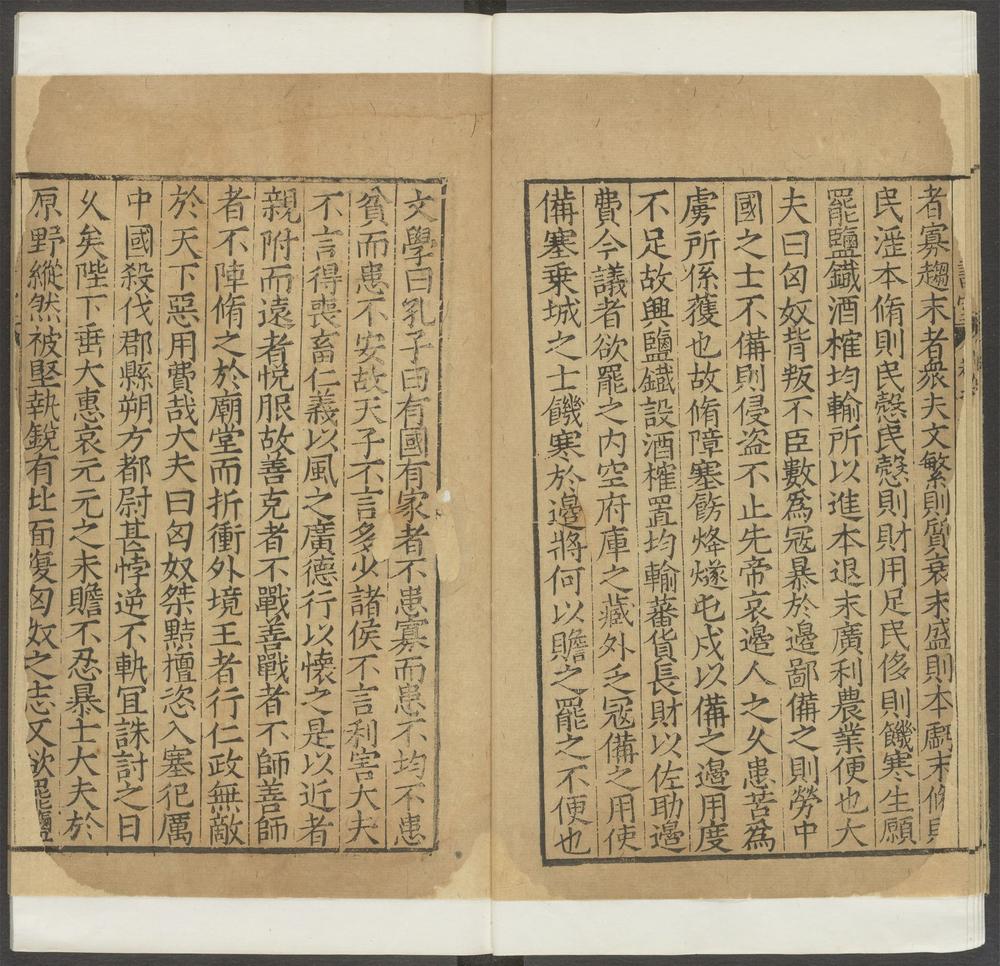 者寡趨末者衆夫文繁則質衰末盛則本虧末脩則
民淫本脩則民慤民慤則財用足民侈則饑寒生願
罷鹽鐵酒榷均輸所以進本退末廣利農業便也大
夫曰匈奴背叛不臣數爲冦暴於邉鄙備之則勞中
國之士不備則侵盗不止先帝哀邉人之乆患苦爲
虜所係獲也故脩障塞飭烽燧屯戍以備之邉用度
不足故興鹽鐵設酒榷置均輸蕃貨長財以佐助邉
費今議者欲罷之内空府庫之藏外乏冦備之用使
備塞乗城之士饑寒於邉將何以贍之罷之不便也
文學曰孔子曰有國有家者不患寡而患不均不患
貧而患不安故天子不言多少諸侯不言利害大夫
不言得喪畜仁義以風之廣德行以懐之是以近者
親附而遠者悅服故善克者不戰善戰者不師善師
者不陣脩之於廟堂而折衝外境王者行仁政無敵
於天下惡用費哉大夫曰匈奴桀黠擅恣入塞犯厲
中國殺伐郡縣朔方都尉甚悖逆不軌宜誅討之日
乆矣陛下垂大惠哀元元之未贍不忍暴士大夫於
原野縱然被堅執銳有北面復匈奴之志又欲罷鹽